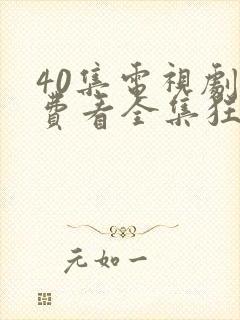 40集電視劇
費看全集狂
元如一